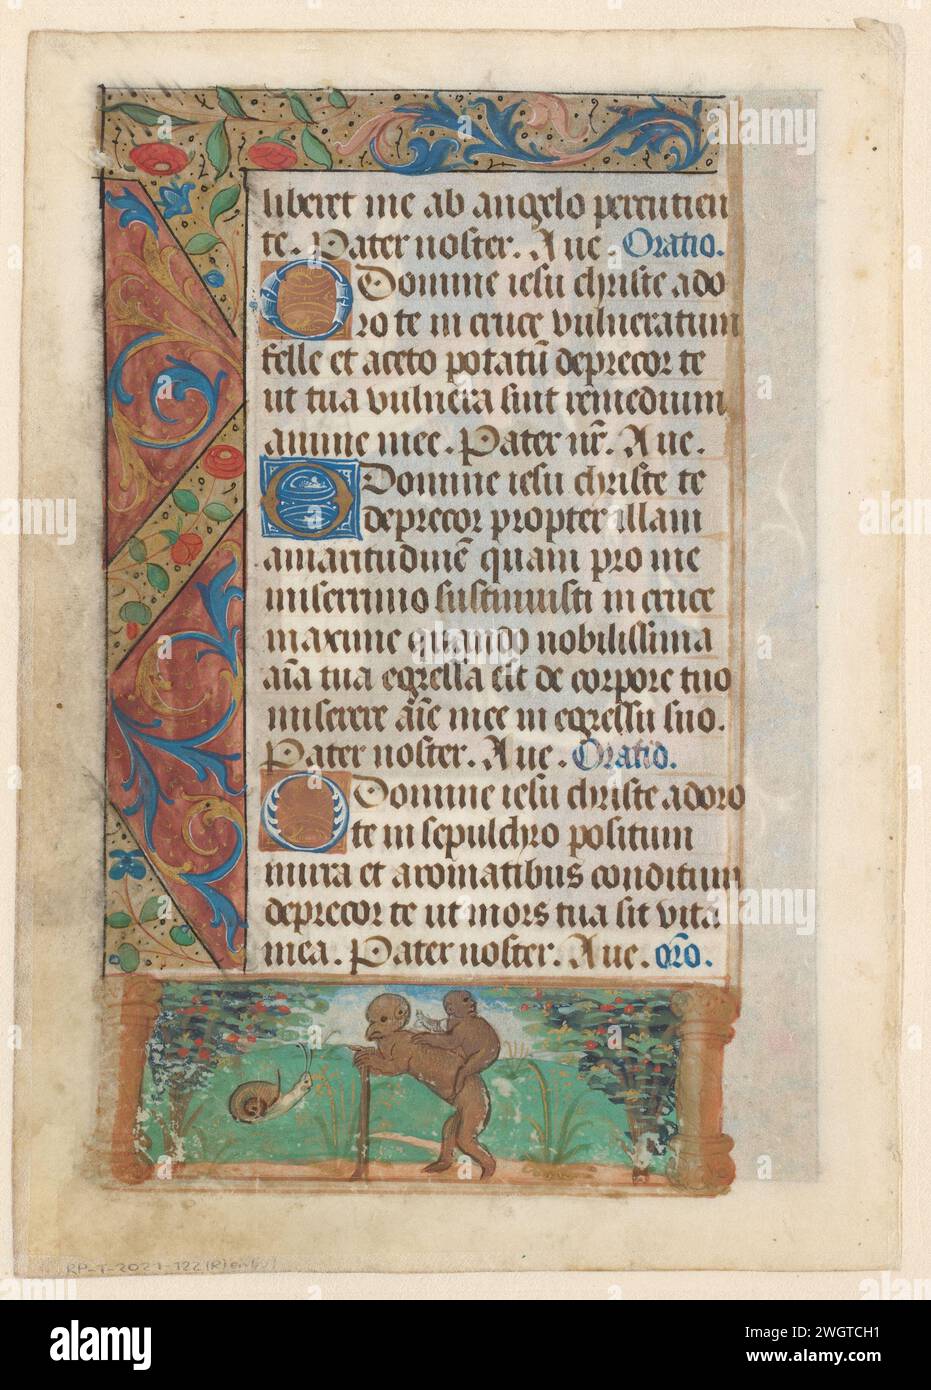 liberet me ab angelo percutien
te. Pater noster. Aue Oratio.
O Domine iesu christe ado
ro te in cruce vulneratum
felle et aceto potatū deprecor te
ut tua vulnera sint remedium
anime mee. Pater nr̄. Aue.
O Domine iesu christe te
deprecor propter illam
amaritudinē quam pro me
miserrimo sustinuisti in cruce
maxime quando nobilissima
aīa tua egressa est de corpore tuo
miserere aīe mee in egressu suo.
Pater noster. Aue. Oratio.
O Domine iesu christe adoro
te in sepulchro positum
mirra et aromatibus conditum
deprecor te ut mors tua sit vita
mea. Pater noster. Aue. orō.
RP-T-2021-122(R)
alamy
Image ID: 2WGTCH1
www.alamy.com